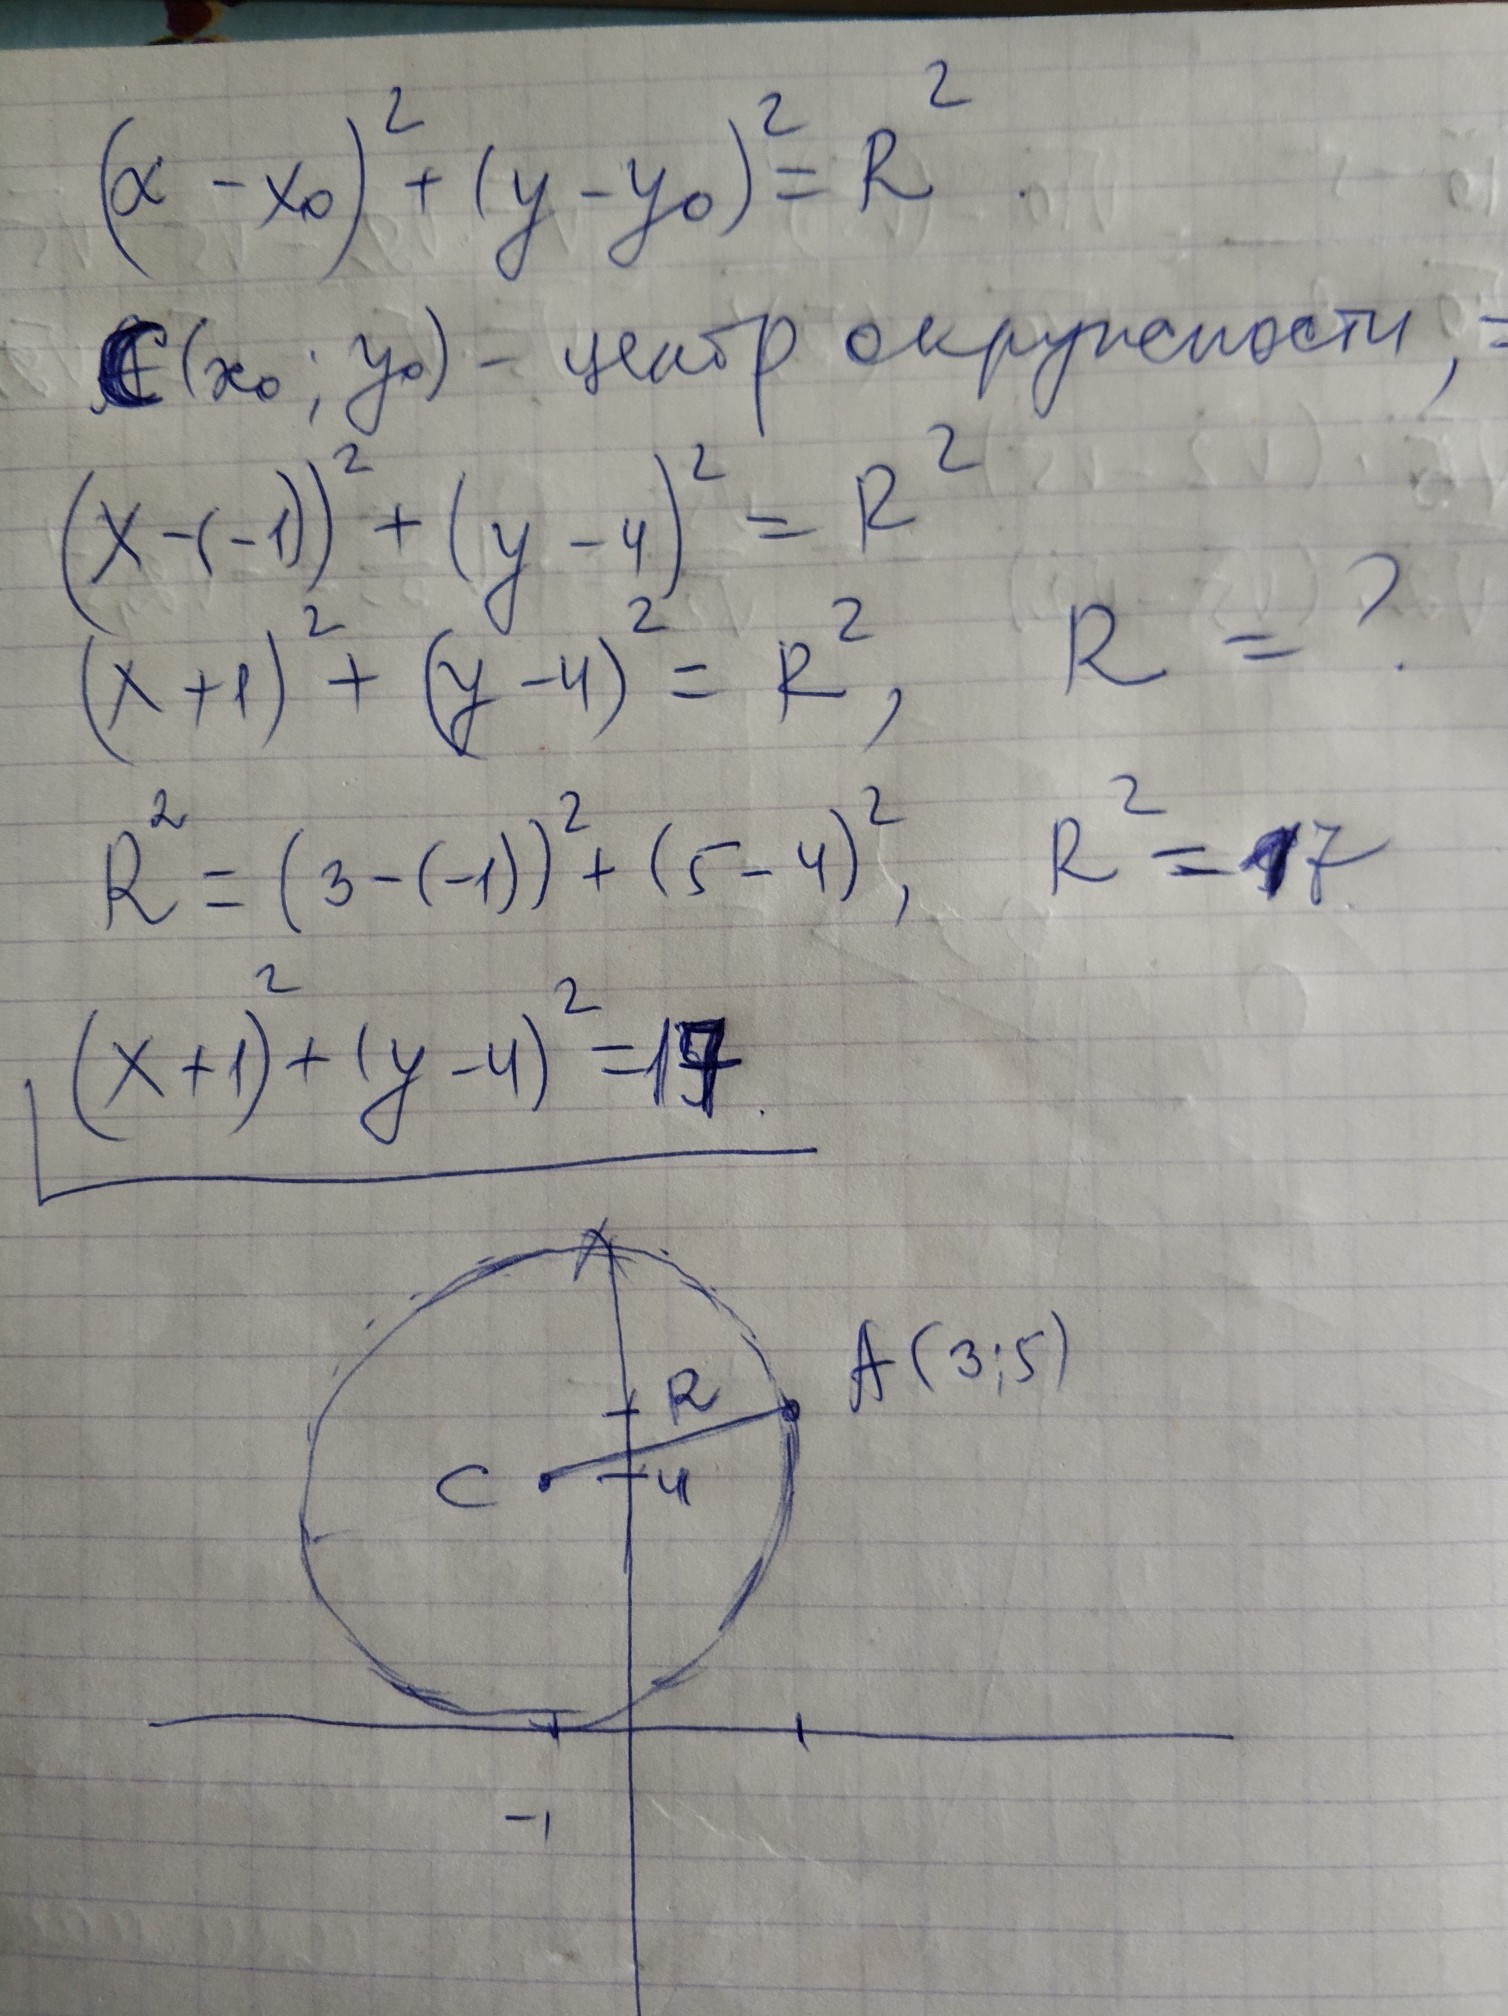 (x - x₀)² + (y - y₀)² = R².
C(x₀; y₀) - центр окружности, =
(x-(-1))² + (y-4)² = R²
(x+1)² + (y-4)² = R², R = ?
R² = (3-(-1))² + (5-4)², R² = 17.
(x+1)² + (y-4)² = 17.
A(3;5)
R
C 4
-1